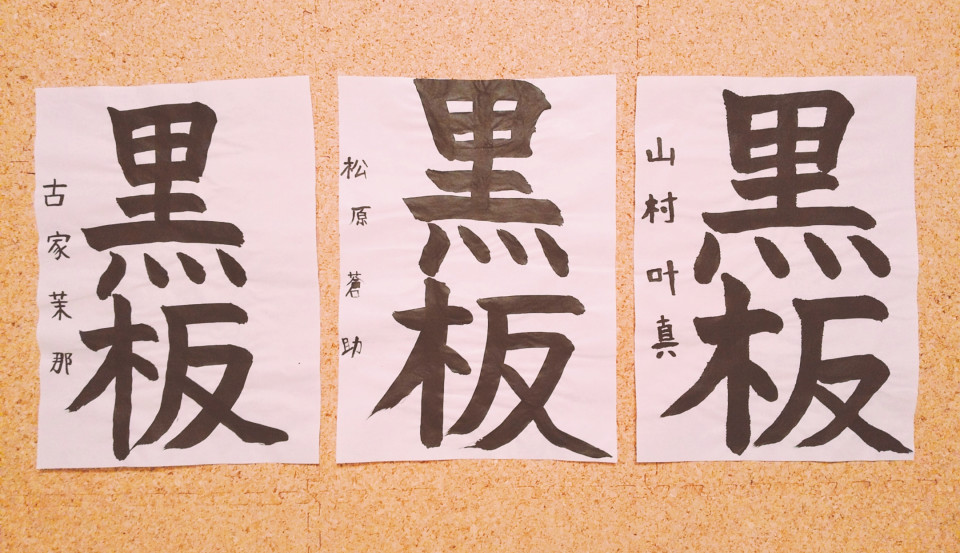 黒板
古家茉那
黒板
松原蒼助
黒板
山村叶真